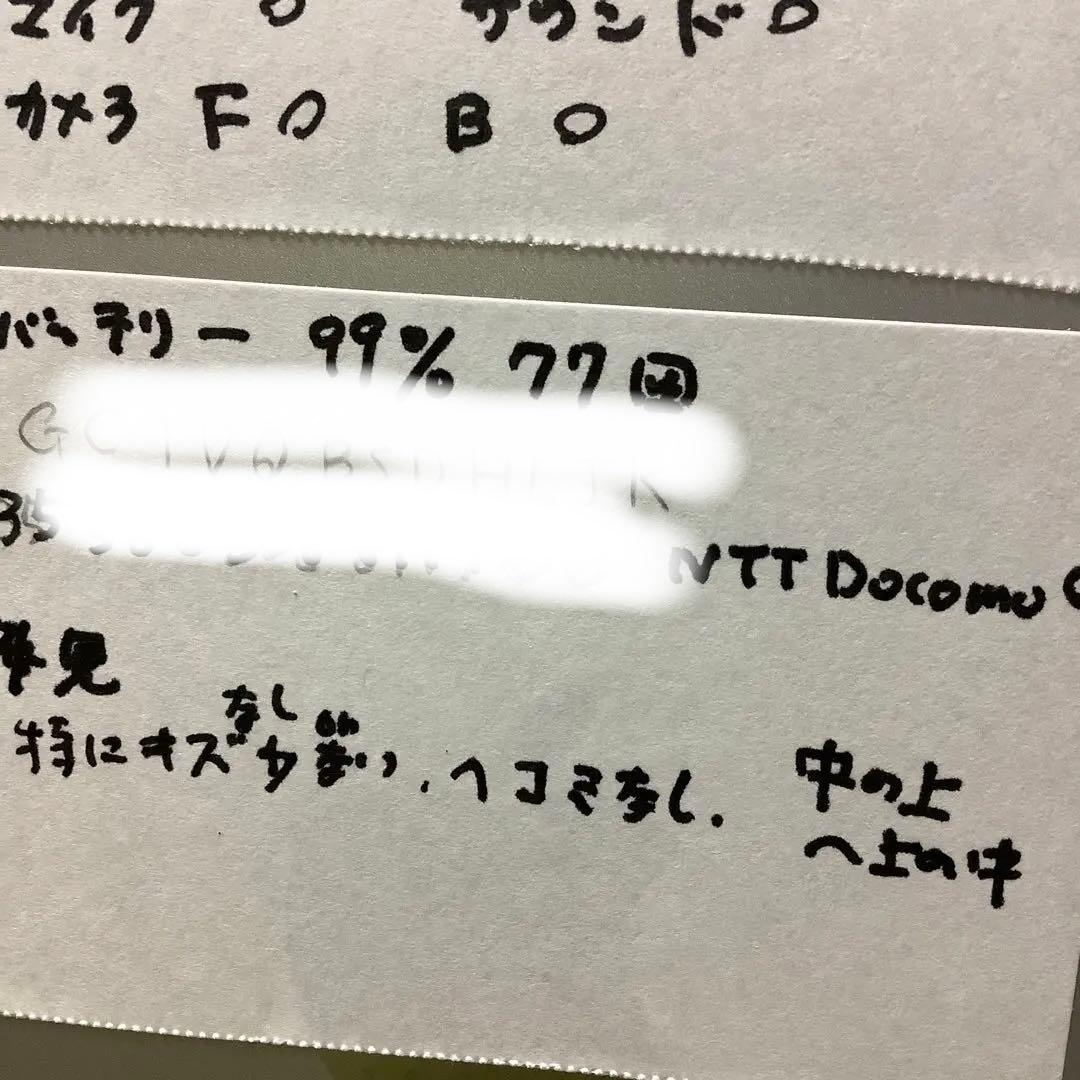 マイク O サウンド O
カメラ F O B O
バッテリー 99% 77回
G
35 NTT Docomo
外見
なし
特にキズ 少ない、ヘコミなし.
中の上
へ上の中